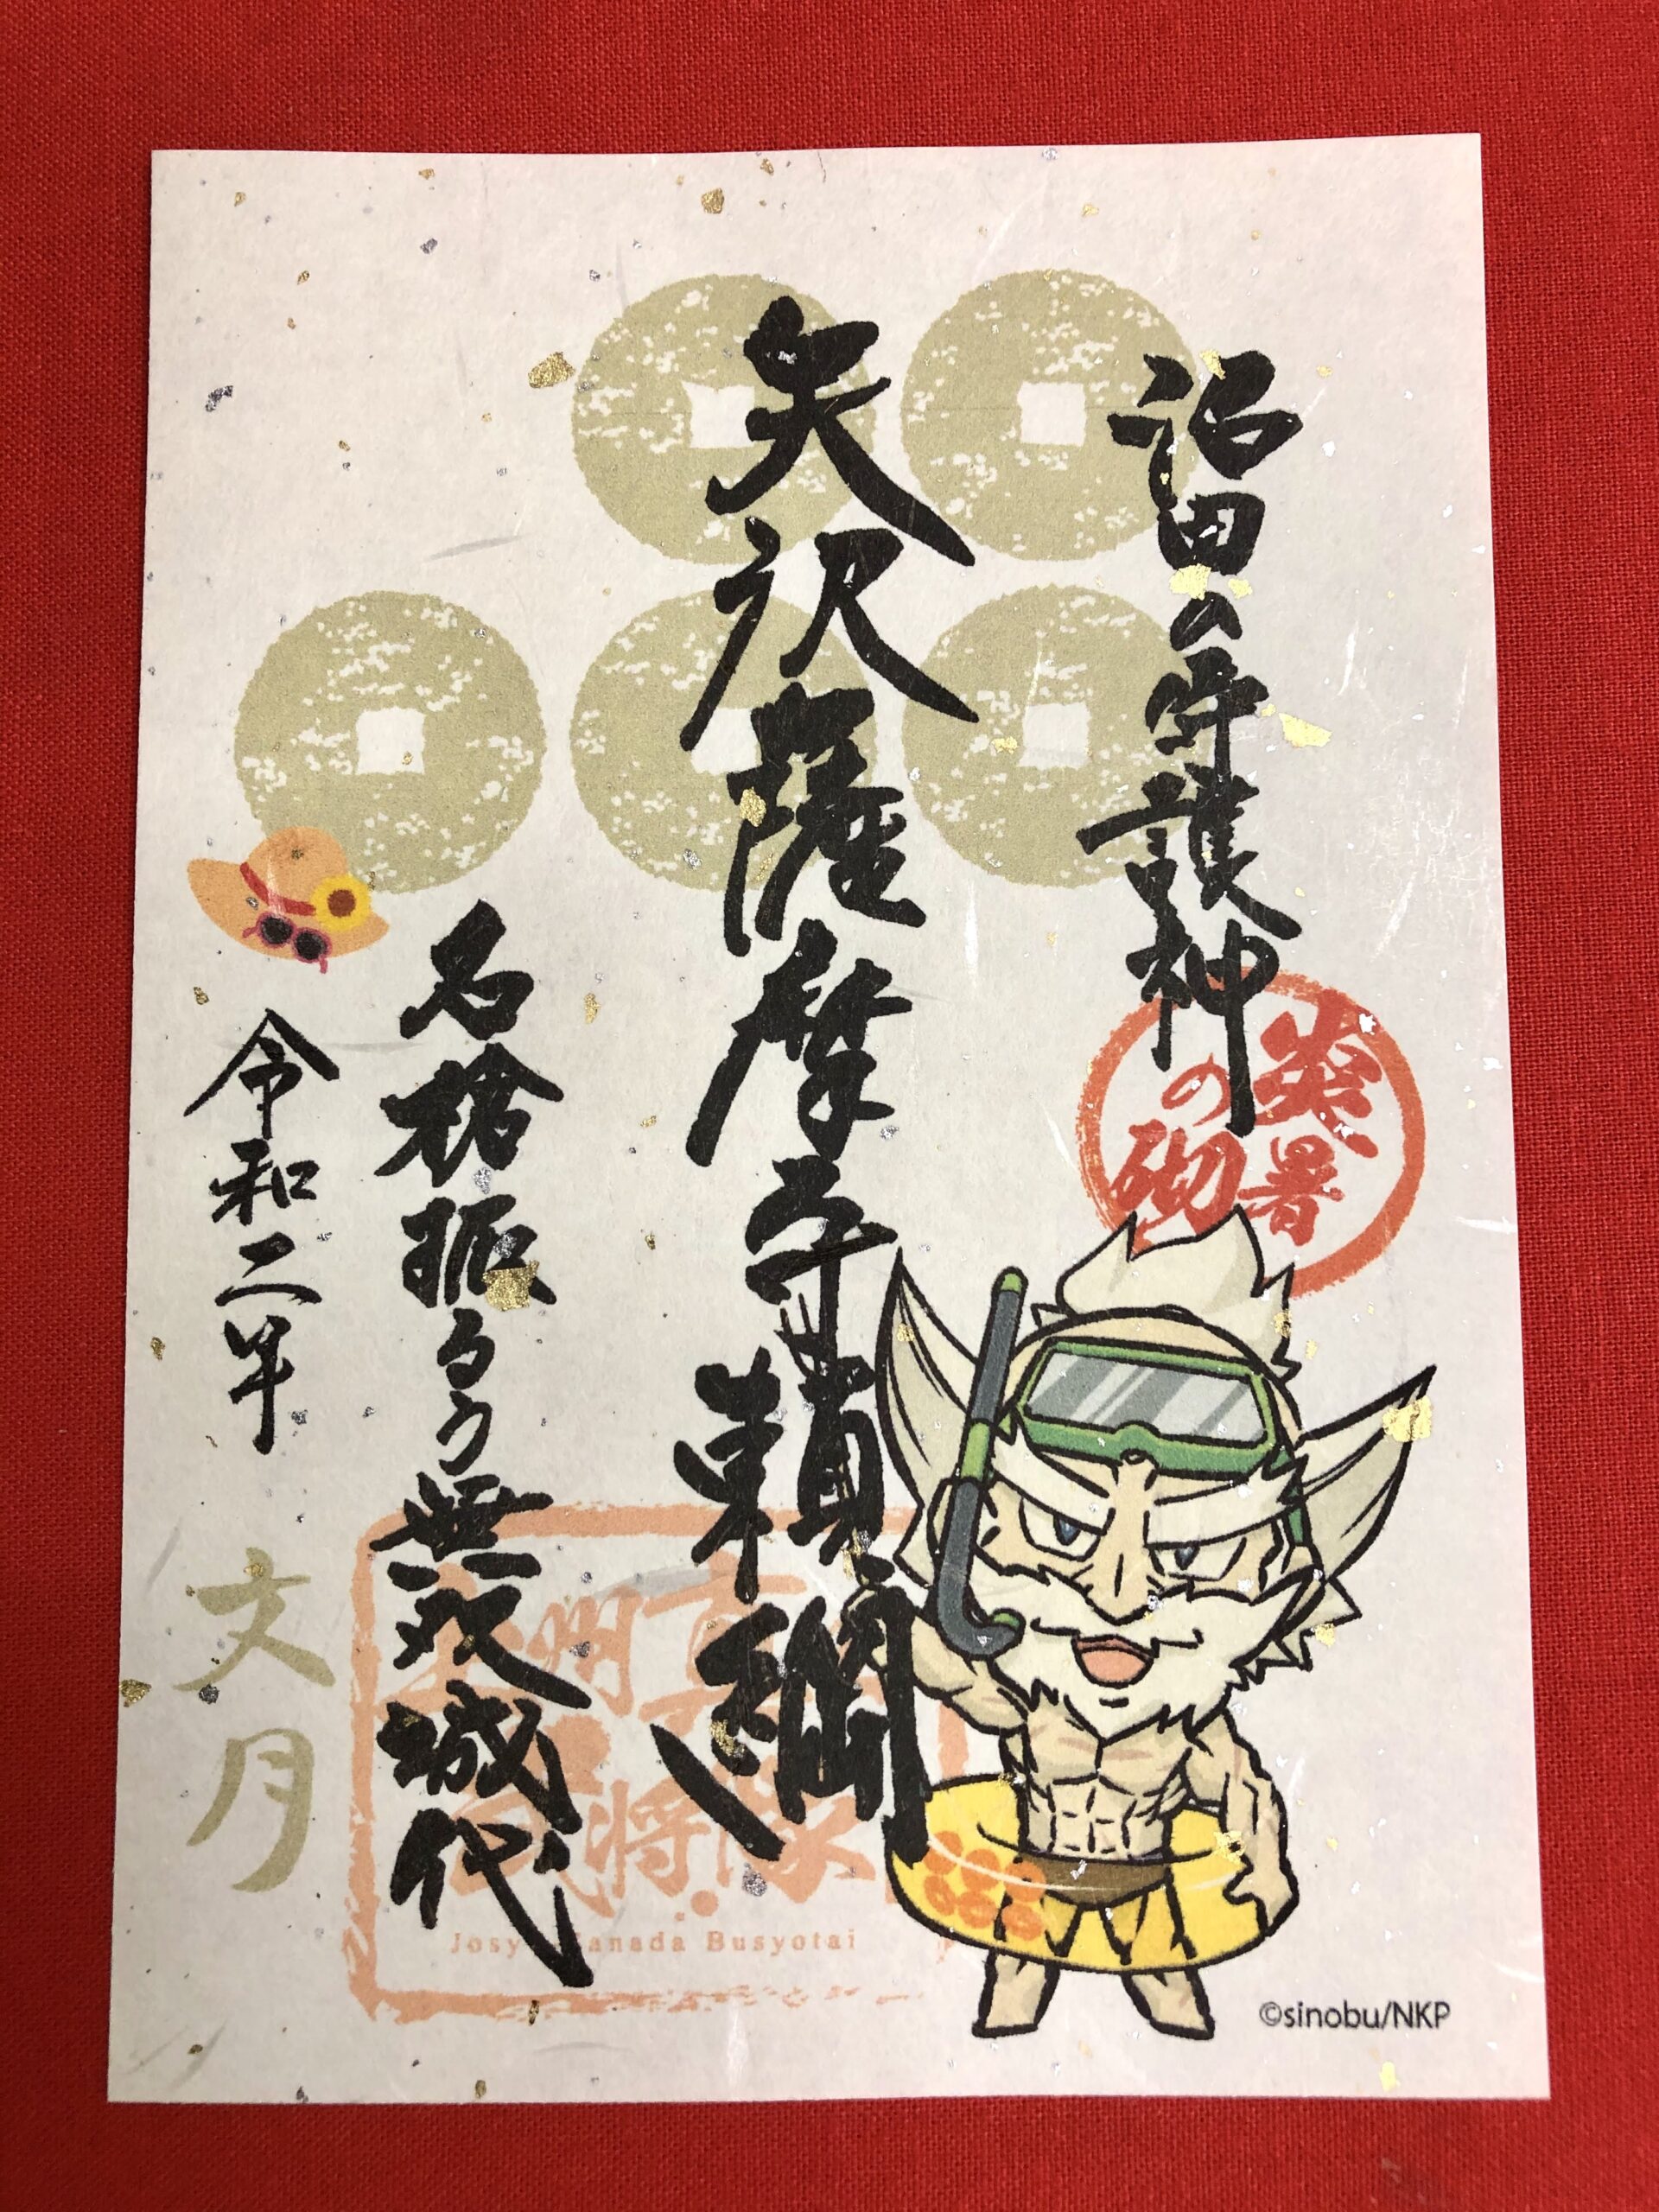 沼田の守護神
炎暑
の砌
矢沢薩摩守頼綱
名槍振るう無双城代
令和二年
文月
州真
武将隊
Josy anada Busyotai
©sinobu/NKP